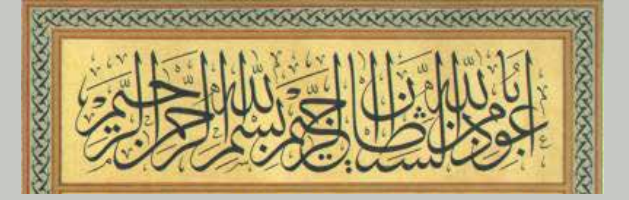 أعوذ بالله من الشيطان الرجيم بسم الله الرحمن الرحيم